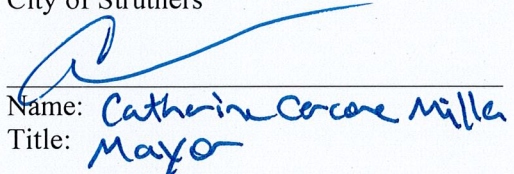 City of Struthers
Name: Catherine Cercone Miller
Title: Mayor